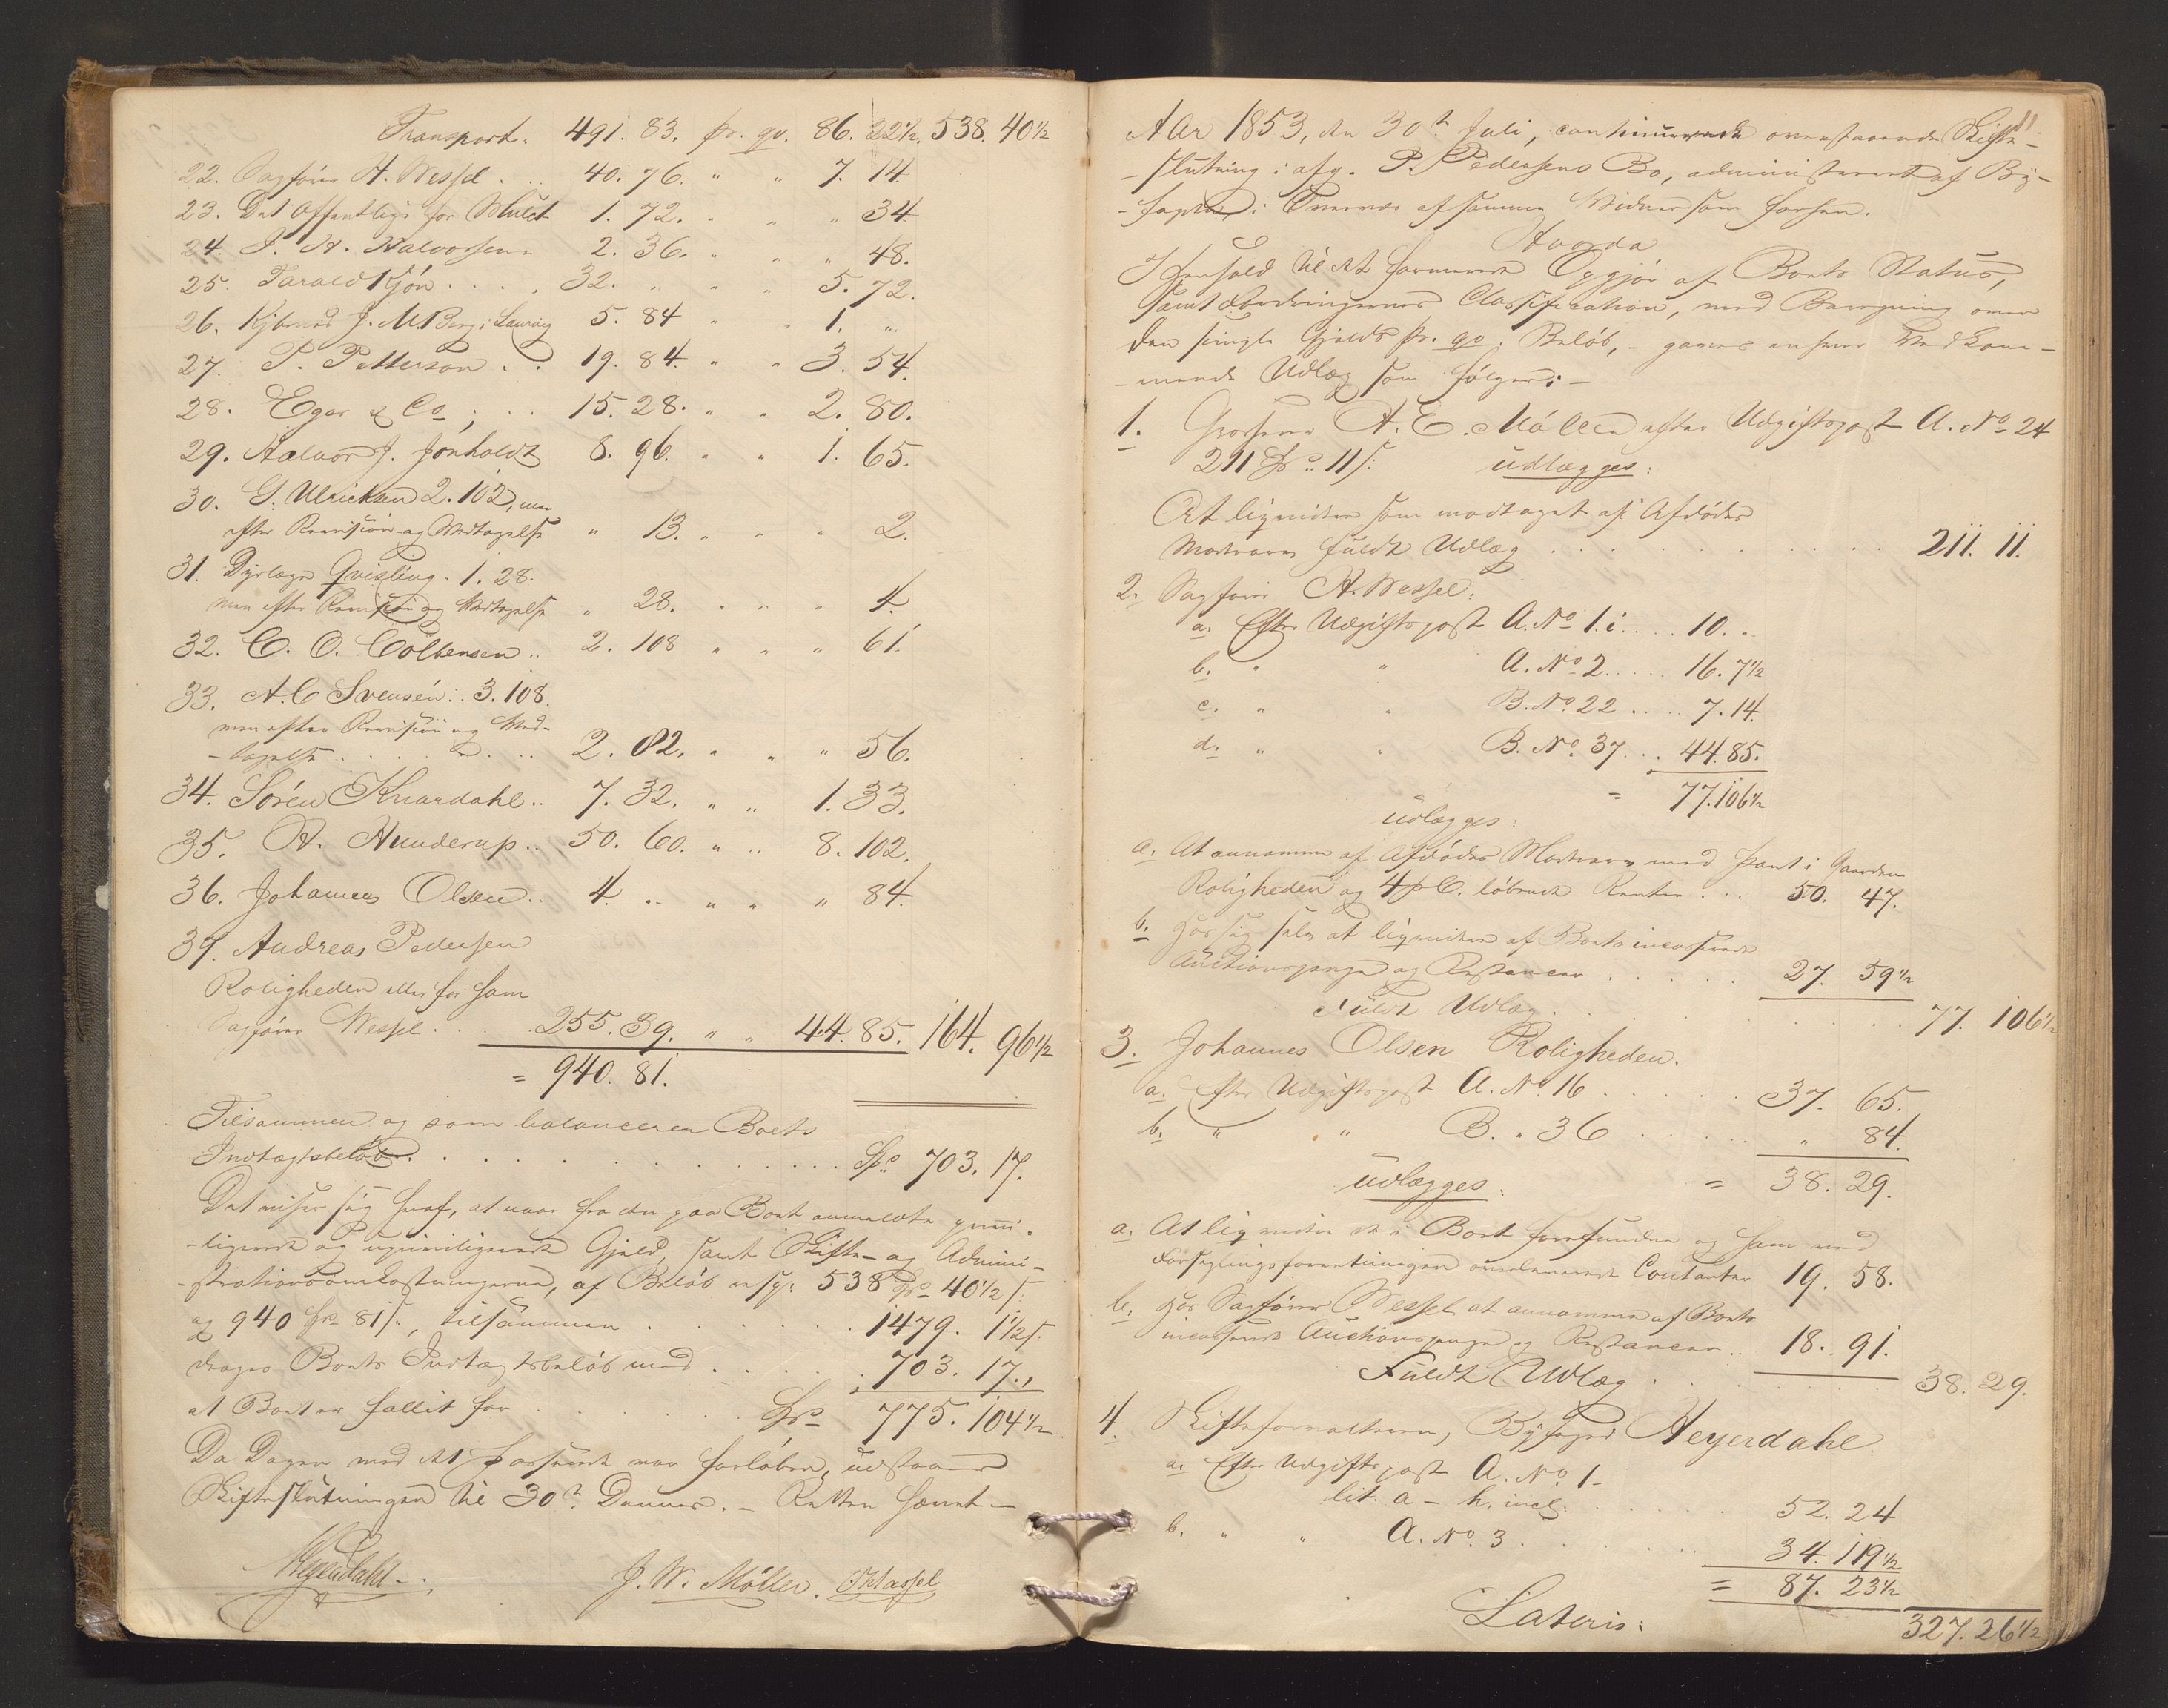 Transport. 491. 83. pr. qv. 86. 22½. 538. 40½
22. Sagfører A. Wessel . . 40. 76. " " 7. 14.
23. Det Offentlige for Mulct 1. 72. " " " 34.
24. J. A. Halvorsen 2. 36. " " " 48.
25. Tarald Kjøn . . . . 32. " " " 5. 72.
26. Kjbmd J. M. Berg i Laurvig 5. 84 " " 1. "
27. P. Petterson . . 19. 84. " " 3. 54.
28. Eger & Co . . . 15. 28. " " 2. 80.
29. Halvor J. Jønholdt 8. 96. " " 1. 65.
30. G. Ulricksen 2. 102, men
efter Revision og Vedtagelse " 13. " " " 2.
31. Dyrlæge Qvisling. 1. 28.
men efter Revision og Vedtagelse " 28. " " " 4.
32. C. O. Coltensen .. 2. 108 " " " 61.
33. A. C Svensen .. 3. 108.
men efter Revision og Ved-
-tagelse . . . . . . . 2. 82. " " " 56.
34. Søren Knardahl .. 7. 32. " " 1. 33.
35. A. Hunderup .. 50. 60. " " 8. 102.
36. Johannes Olsen .. 4. " " " " 84.
37. Andreas Pedersen
Roligheden eller for ham
Sagfører Wessel . . . . 255. 39. " " 44. 85. 164. 96½
= 940. 81.
Tilsammen og som balancerer Boets
Indtægtsbeløb . . . . . . . . . Spd 703. 17.
Det viser sig heraf, at naar fra den paa Boet anmeldte privi-
-ligerede og upriviligerede Gjeld, samt Skifte- og Admini-
-strationsomkostningerne, af Beløb resp: 538 Spd 40½ s:
og 940 Spd 81 s:, tilsammen . . . . . . 1479. 1½ s:
drages Boets Indtægtsbeløb med . . . . 703. 17.,
at Boet er fallit for . . . . . . Spd 775. 104½
Da Dagen med det Passerede var forløben, udstaaer
Skifteslutningen til 30te Dennes. – Retten hævet. –
Heyerdahl. J. W. Møller. Hassel
11
Aar 1853, den 30te Juli, continuerede ovenstaaende Skifte-
-slutning i afg. P. Pedersens Bo, administreret af By-
-fogden i Overvær af samme Vidner som forhen.
Hvorda
I Henhold til det formerede Opgjør af Boets Status,
samt Fordringernes Classification, med Beregning over
den simple Gjelds pr. qv. Beløb, – gaves enhver Vedkom-
-mende Udlæg som følger: –
1. Grosserer A. E. Møller efter Udgiftspost A. No 24
211 Spd: 11 s: udlægges:
At liqvidere som modtaget af Afdødes
Modvarer fuldt Udlæg . . . . . . . . 211. 11.
2. Sagfører A. Wessel:
a. Efter Udgiftspost A. No 1. i. . . . 10. "
b. " " A. No 2. . . . . 16. 7½
c. " " B. No 22 . . . . 7. 14.
d. " " B. No 37 . . . 44. 85.
= 77. 106½
udlægges:
a. At annamme af Afdødes Modvarer med Pant i Gaarden
Roligheden og 4 p C. løbende Renter . . . 50. 47.
b. hos sig selv at liqvidere af Boets incasserede
Auctionspenge og Restancer . . . . . 27. 59½
Fuldt Udlæg . . . . . . . 77. 106½
3. Johannes Olsen Roligheden.
a. Efter Udgiftspost A. No 16 . . . . . 37. 65.
b. " " B. " 36 . . . . . " 84.
udlægges: = 38. 29.
a. At liqvidere de i Boet forefundne og ham ved
Forseglingsforretningen overleverede Contanter 19. 58.
b. hos Sagfører Wessel at annamme af Boets
incasserede Auctionspenge og Restancer .. 18. 91.
Fuldt Udlæg . . . . . . 38. 29.
4. Skifteforvalteren, Byfoged Heyerdahl
a. Efter Udgiftspost A. No 1
lit. a – h. incl: . . . . . 52. 24
b. " " A. No. 3 . . . . . . 34. 119½
= 87. 23½
Lateris: 327. 26½